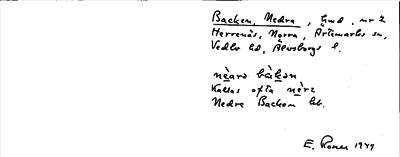 Backen, Nedra, hmd. nr 2
Herrenäs, Norra, Ärtemarks sn,
Vedbo hd, Älvsborgs l.
nèarə bàkən
Kallas ofta nèrə
Nedre Backen lok.
E. Rosen 1949